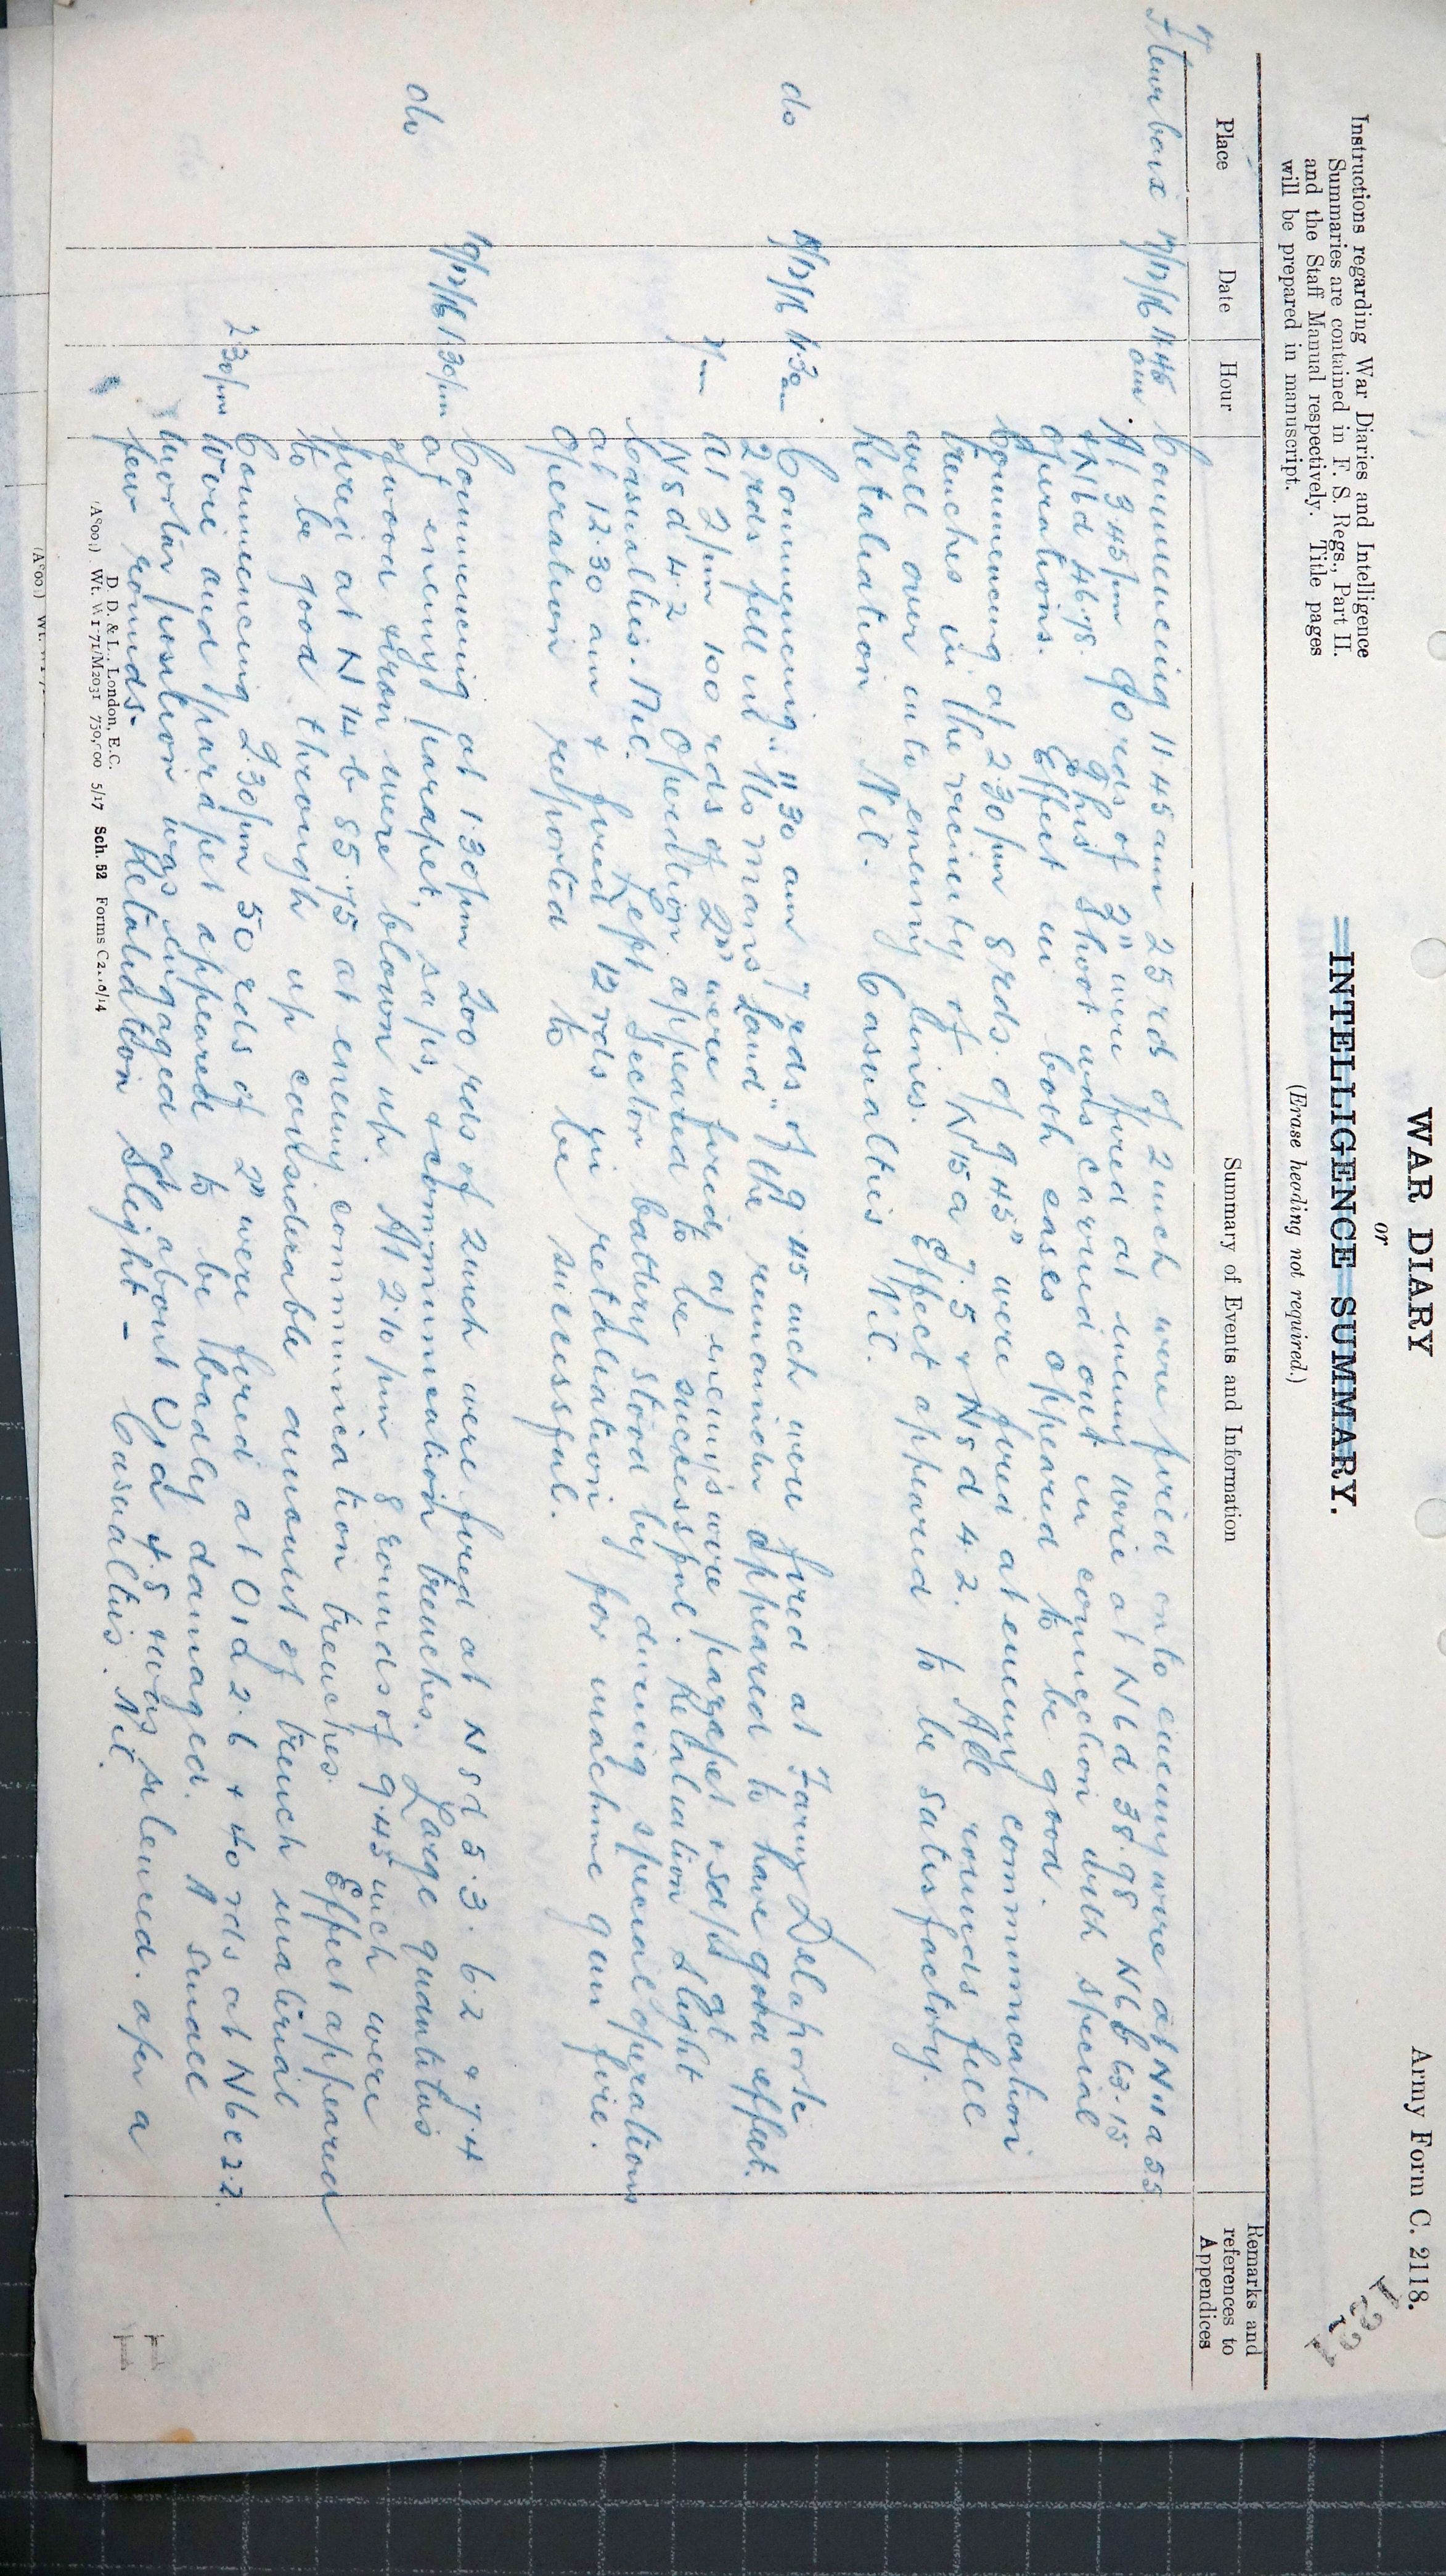 Army Form C. 2118.
WAR DIARY
or
INTELLIGENCE SUMMARY.
(Erase heading not required.)
Instructions regarding War Diaries and Intelligence
Summaries are contained in F. S. Regs., Part II.
and the Staff Manual respectively. Title pages
will be prepared in manuscript.
Place Date Hour Summary of Events and Information Remarks and references to Appendices
Fleurbaix 17/12/16 11.45 am Commencing 11.45 am 25 rds of 2 inch were fired onto enemy wire at N11 a 5.5.
At 3.45 pm 90 rds of 2" were fired at enemy wire at N6 d 38.98 N6 b 63.15
+ N6 d 46.78. This shoot was carried out in conjunction with special
operations. Effect in both cases appeared to be good.
Commencing at 2.30 pm 8 rds. of 9.45" were fired at enemy communication
trenches in the vicinity of N15 a 7.5 + N8 d 4.2. All rounds fell
well over into enemy lines. Effect appeared to be satisfactory.
Retaliation Nil. Casualties Nil.
do 18/12/16 11.30 am Commencing 11.30 am 7 rds of 9.45 inch were fired at Farm Delaporte
2 rds fell in "No mans Land" the remainder appeared to have good effect.
2 pm At 2 pm 100 rds of 2" were fired at enemy's wire parapet + saps at
N8 d 4.2 Operation appeared to be successful. Retaliation slight
Casualties. Nil. Left Sector battery stood by during special operations
at 12.30 am + fired 12 rds in retaliation for machine gun fire.
Operation reported to be successful.
do 19/12/16 1.30 pm Commencing at 1.30 pm 200 rds of 2 inch were fired at N8 d 5.3. 6.2 + 7.4
of enemy parapet, saps, + communication trenches. Large quantities
of wood + iron were blown up. At 2.10 pm 8 rounds of 9.45 inch were
fired at N14 b 85.75 at enemy communication trenches. Effect appeared
to be good through up considerable amount of trench material
2.30 pm Commencing 2.30 pm 50 rds of 2" were fired at O1 d 2.6 + 40 rds at N6 c 2.2.
Wire and parapet appeared to be badly damaged. A small
mortar position was engaged at about O1 d 4.8 + was silenced. after a
few rounds. Retaliation Slight - Casualties. Nil.
D. D. & L., London, E.C.
Wt. W1771/M2031 750,000 5/17 Sch. 52 Forms